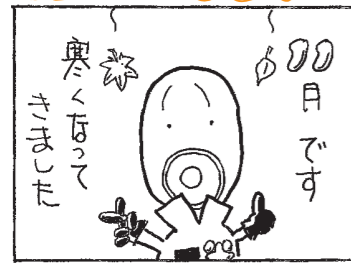 11月です
寒くなって
きました